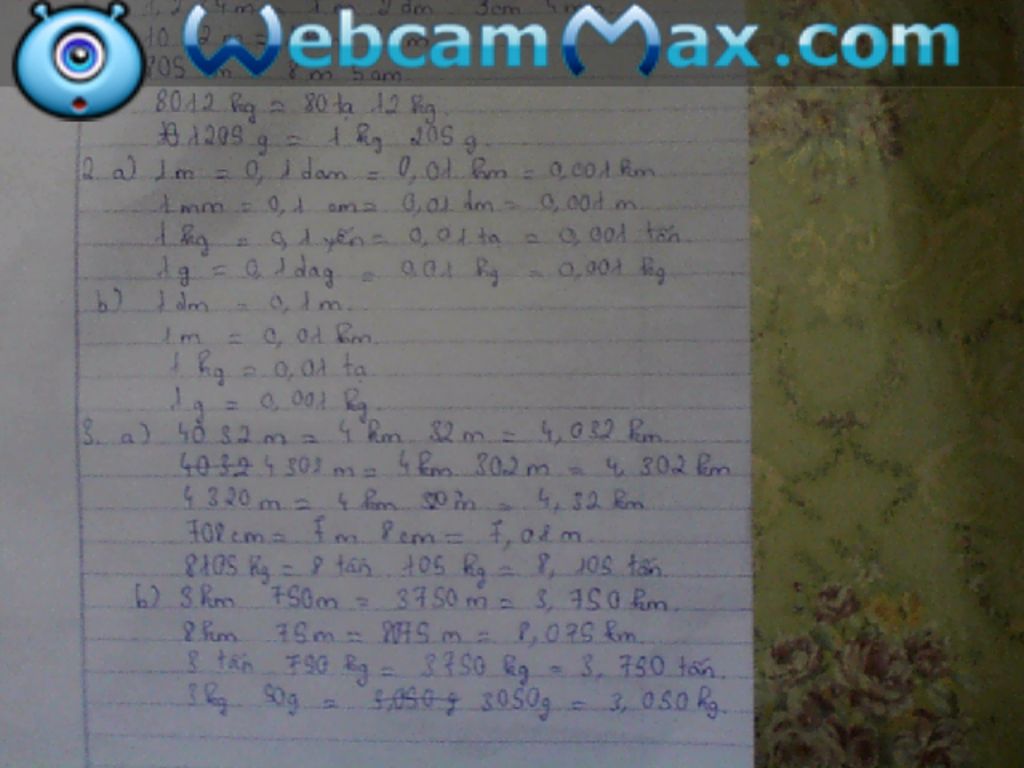 WebcamMax.com
8 m 5 cm
8012 kg = 80 tạ 12 kg.
1205 g = 1 kg 205 g.
2. a) 1 m = 0,1 dam = 0,01 hm = 0,001 km
1 mm = 0,1 cm = 0,01 dm = 0,001 m.
1 kg = 0,1 yến = 0,01 tạ = 0,001 tấn.
1 g = 0,1 dag = 0,01 hg = 0,001 kg
b) 1 dm = 0,1 m.
1 m = 0,01 hm.
1 kg = 0,01 tạ
1 g = 0,001 kg.
3. a) 4032 m = 4 km 32 m = 4,032 km.
4032 4302 m = 4 km 302 m = 4,302 km
4320 m = 4 km = 4,32 km
708 cm = 7 m 8 cm = 7,08 m.
8105 kg = 8 tấn 105 kg = 8,105 tấn.
b) 3 km 750 m = 3750 m = 3,750 km.
8 km 75 m = 8075 m = 8,075 km.
3 tấn 750 kg = 3750 kg = 3,750 tấn.
3 kg 50 g = 3,050 g 3050 g = 3,050 kg.